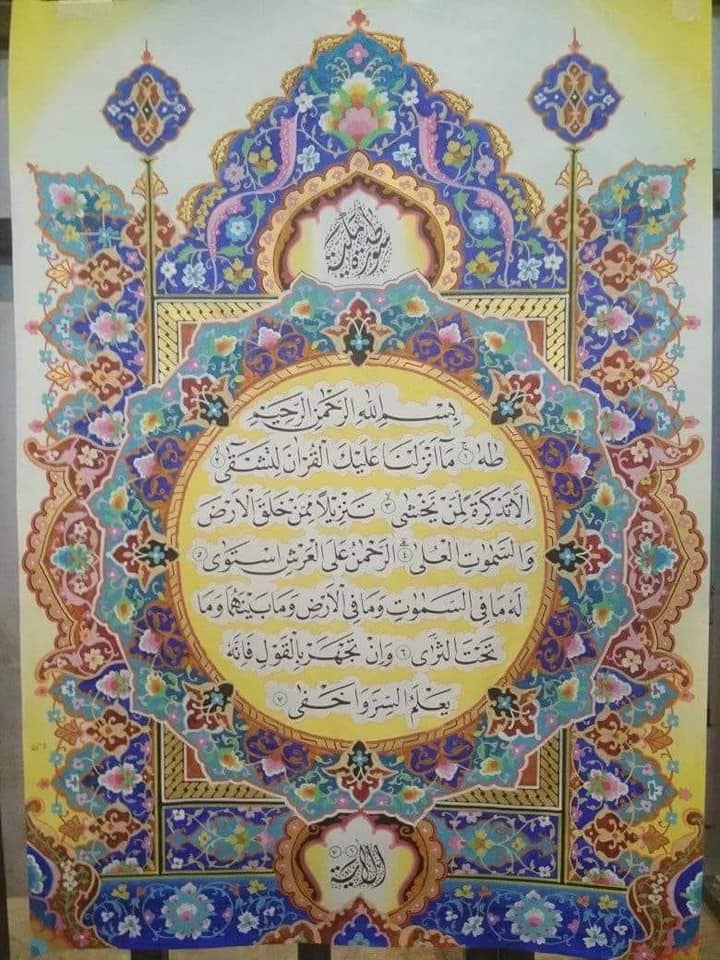 سورة طه مكية
بِسْمِ اللهِ الرَّحْمٰنِ الرَّحِيْمِ
طٰهٰ ١ مَآ اَنْزَلْنَا عَلَيْكَ الْقُرْاٰنَ لِتَشْقٰٓى ٢
اِلَّا تَذْكِرَةً لِّمَنْ يَخْشٰى ٣ تَنْزِيْلًا مِّمَّنْ خَلَقَ الْاَرْضَ
وَالسَّمٰوٰتِ الْعُلٰى ٤ اَلرَّحْمٰنُ عَلَى الْعَرْشِ اسْتَوٰى ٥
لَهٗ مَا فِى السَّمٰوٰتِ وَمَا فِى الْاَرْضِ وَمَا بَيْنَهُمَا وَمَا
تَحْتَ الثَّرٰى ٦ وَاِنْ تَجْهَرْ بِالْقَوْلِ فَاِنَّهٗ
يَعْلَمُ السِّرَّ وَاَخْفٰى ٧
الاية